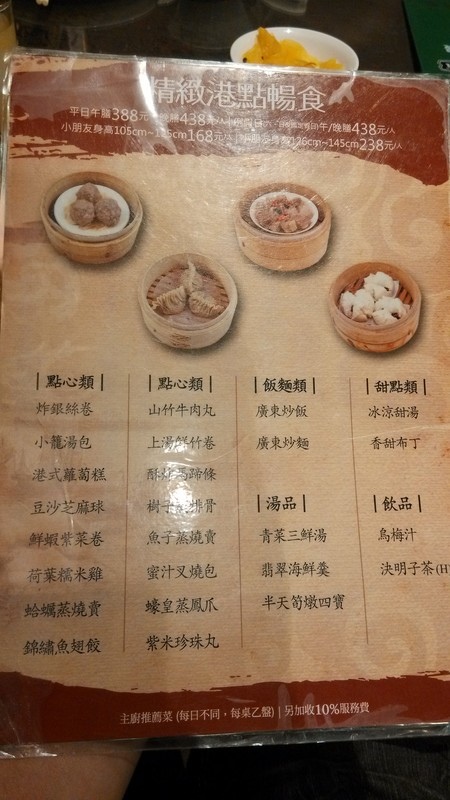 精緻港點暢食
平日午膳388元 晚膳438元/人 午/晚膳438元/人
小朋友身高105cm~125cm168元/人 126cm~145cm238元/人
|點心類|
炸銀絲卷
小籠湯包
港式蘿蔔糕
豆沙芝麻球
鮮蝦紫菜卷
荷葉糯米雞
蛤蠣蒸燒賣
錦繡魚翅餃
|點心類|
山竹牛肉丸
上湯鮮竹卷
酥炸馬蹄條
樹子 排骨
魚子蒸燒賣
蜜汁叉燒包
蠔皇蒸鳳爪
紫米珍珠丸
|飯麵類|
廣東炒飯
廣東炒麵
|湯品|
青菜三鮮湯
翡翠海鮮羹
半天筍燉四寶
|甜點類|
冰涼甜湯
香甜布丁
|飲品|
烏梅汁
決明子茶(H
主廚推薦菜 (每日不同，每桌乙盤) | 另加收10%服務費